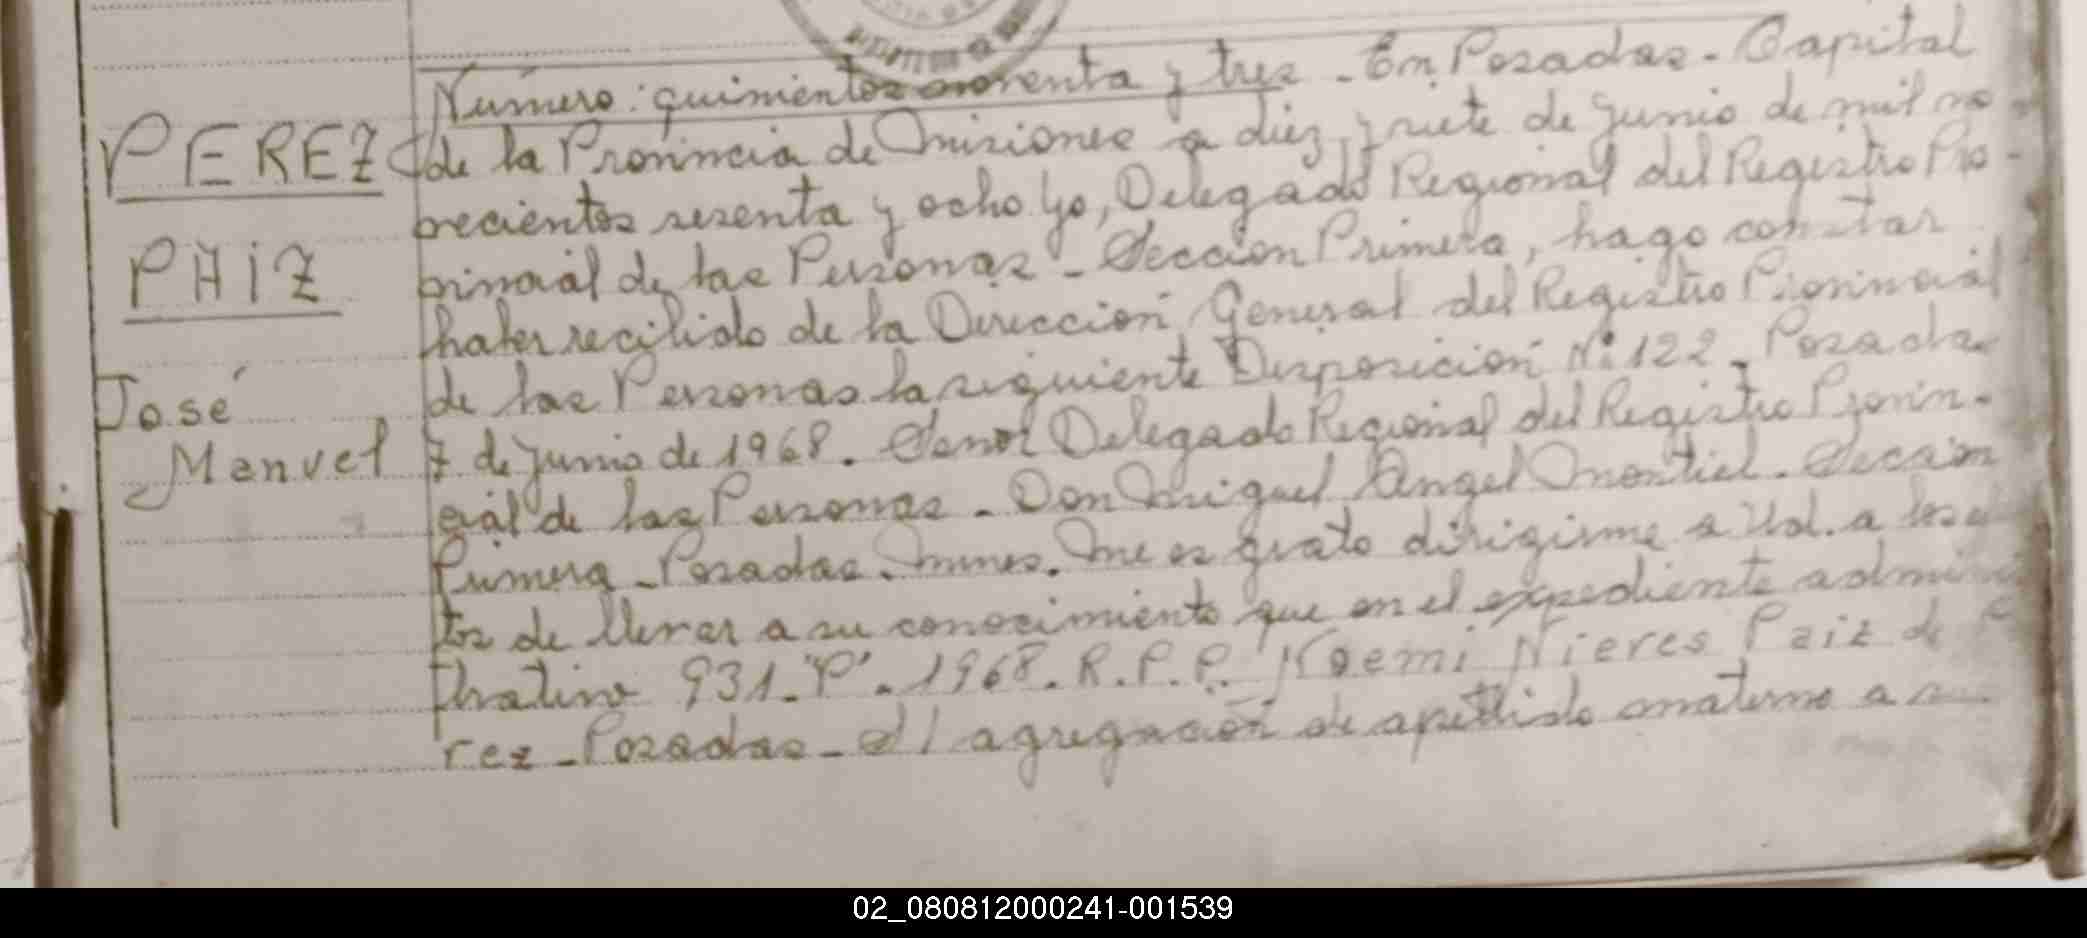 PEREZ
PAIZ
José
Manuel
Número: quinientos noventa y tres - En Posadas - Capital
de la Provincia de Misiones a diez y siete de junio de mil no-
vecientos sesenta y ocho yo, Delegado Regional del Registro Pro-
vincial de las Personas - Sección Primera, hago constar
haber recibido de la Dirección General del Registro Provincial
de las Personas la siguiente Disposición Nº 122 - Posadas
7 de junio de 1968. Señor Delegado Regional del Registro Provin-
cial de las Personas - Don Miguel Angel Montiel - Sección
Primera - Posadas - Mnes. Me es grato dirigirme a Ud. a los
tos de llevar a su conocimiento que en el expediente
trativo 931-"P"-1968. R.P.P. Noemi Nieres Paiz de
rez - Posadas - s/ agregación de apellido materno a
02_080812000241-001539